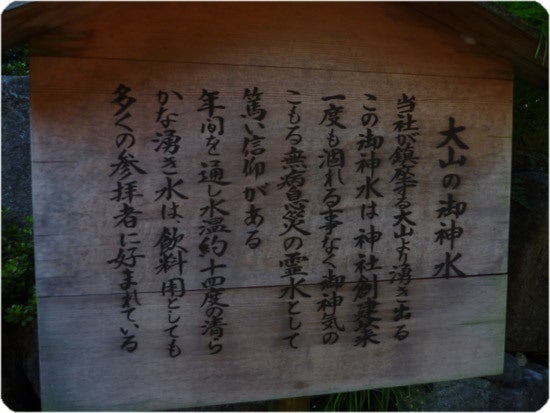 大山の御神水
当社が鎮座する大山より湧き出る
この御神水は神社創建来
一度も涸れる事なく御神気の
こもる無病息災の霊水として
篤い信仰がある
年間を通し水温約十四度の清ら
かな湧き水は飲料用としても
多くの参拝者に好まれている